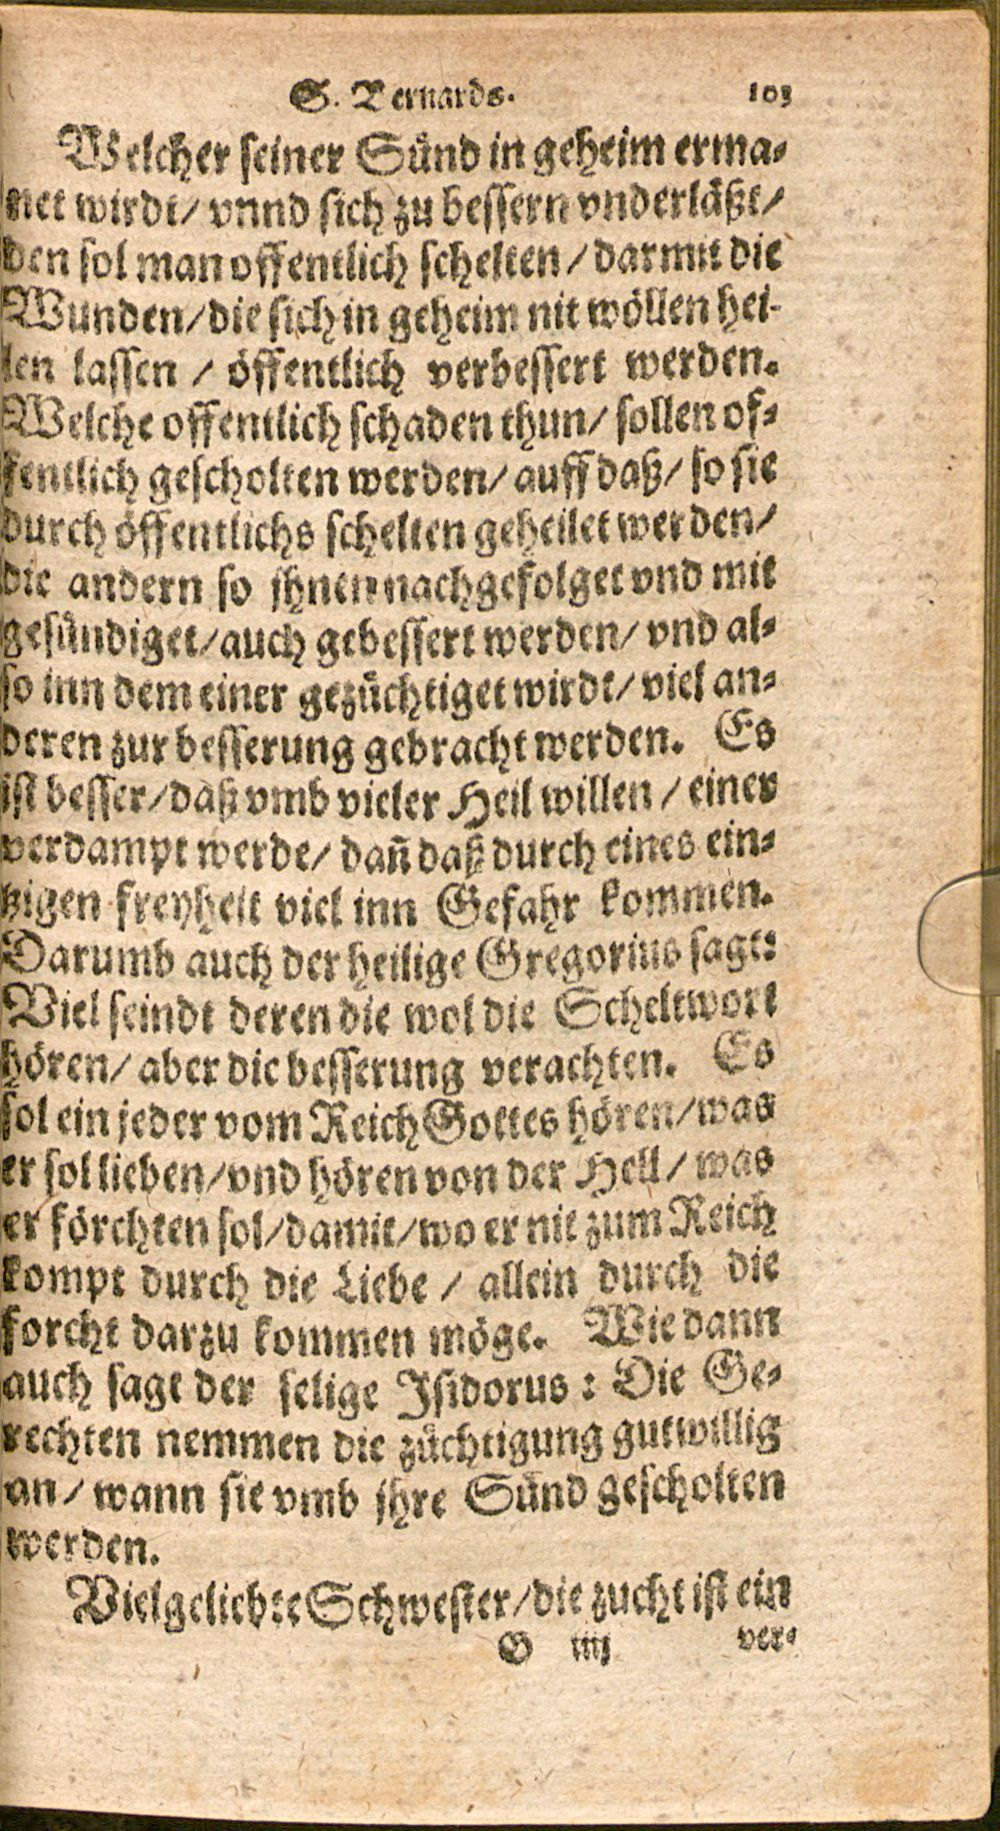 S. Bernards. 103
Welcher seiner Sünd in geheim erma⸗
net wirdt/ vnnd sich zu bessern vnderläßt/
den sol man offentlich schelten / darmit die
Wunden/ die sich in geheim nit wöllen hei-
len lassen / öffentlich verbessert werden.
Welche offentlich schaden thun/ sollen of⸗
fentlich gescholten werden/ auff daß/ so sie
durch öffentlichs schelten geheilet werden/
die andern so jhnen nachgefolget vnd mit
gesündiget/ auch gebessert werden/ vnd al⸗
so inn dem einer gezüchtiget wirdt/ viel an⸗
deren zur besserung gebracht werden. Es
ist besser/ daß vmb vieler Heil willen / einer
verdampt werde/ dañ daß durch eines ein⸗
tzigen freyheit viel inn Gefahr kommen.
Darumb auch der heilige Gregorius sagt:
Viel seindt deren die wol die Scheltwort
hören/ aber die besserung verachten. Es
sol ein jeder vom Reich Gottes hören/ was
er sol lieben/ vnd hören von der Hell/ was
er förchten sol/ damit/ wo er nit zum Reich
kompt durch die Liebe / allein durch die
forcht darzu kommen möge. Wie dann
auch sagt der selige Isidorus : Die Ge⸗
rechten nemmen die züchtigung gutwillig
an / wann sie vmb jhre Sünd gescholten
werden.
Vielgeliebte Schwester/ die zucht ist ein
G iiij ver⸗